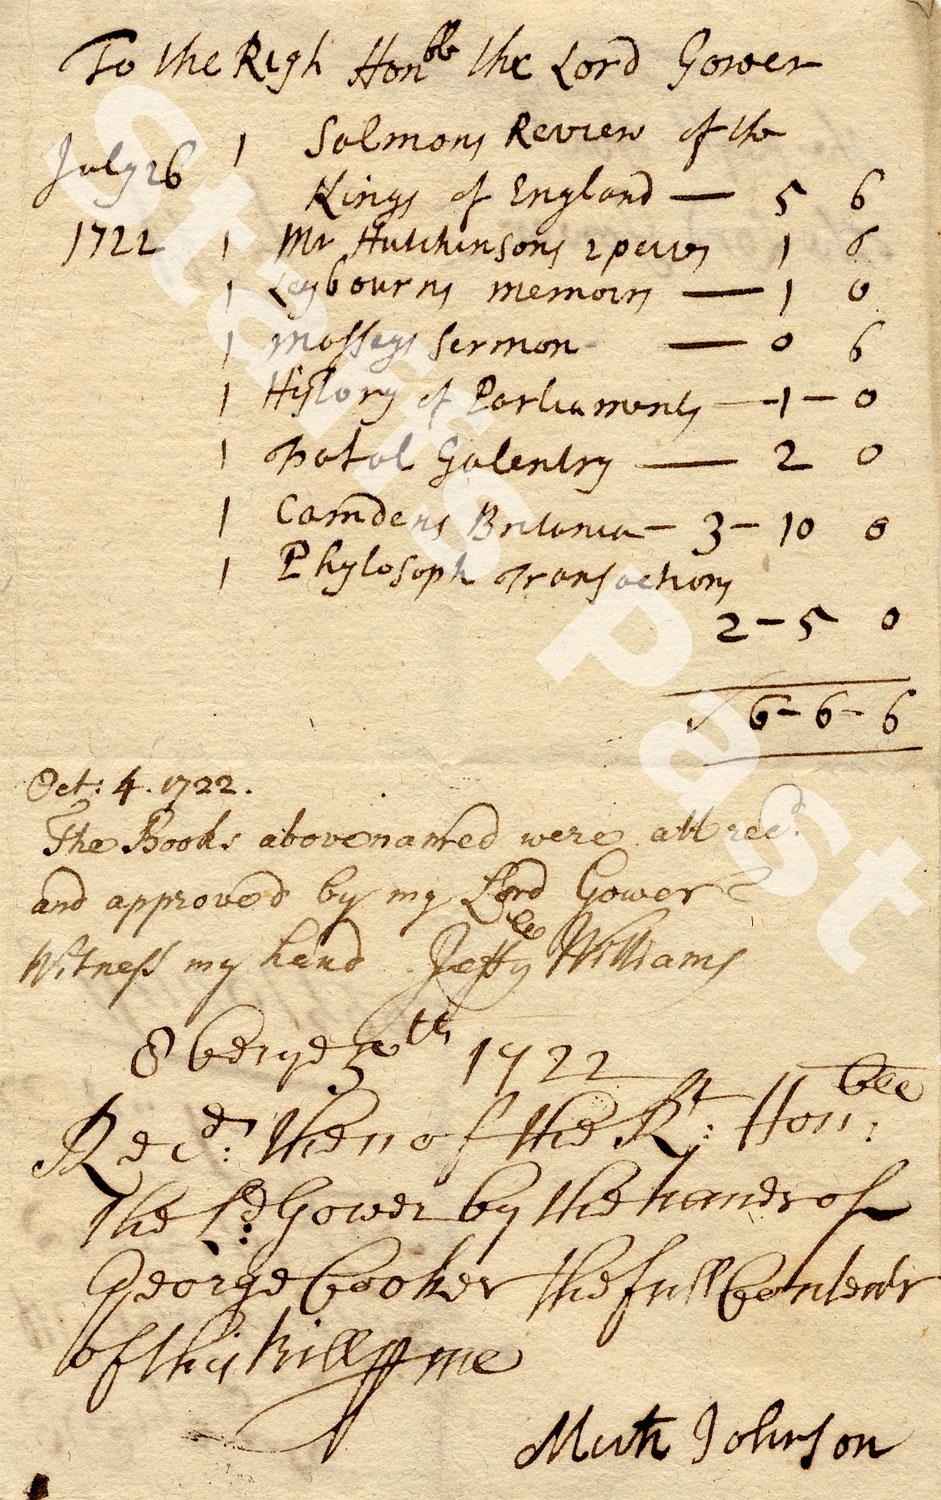 To the Righ Honble the Lord Gower
July 26 1 Salmons Review of the
Kings of England — 5 6
1722 1 Mr Hutchinsons 2 peices 1 6
1 Leybourns memoirs — 1 0
1 Masseys Sermon — 0 6
1 History of Parliaments — 1 — 0
1 Fatal Galentry — 2 0
1 Camdens Britania — 3 — 10 0
1 Phylosoph Transactions
2 — 5 0
6 — 6 — 6
Oct: 4. 1722.
The Books abovenamed were all recd.
and approved by my Lord Gower
Witness my hand Jeffy Williams
8ber ye 5th 1722
Recd: then of the Rt: Honble:
the Ld: Gower by the hands of
George Cooker the full Contents
of this bill me
Math Johnson
Staffs Past